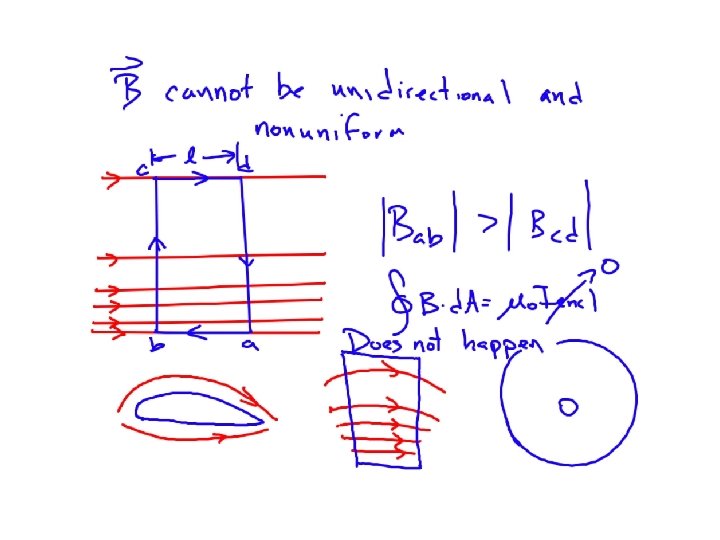 B⃗ cannot be unidirectional and
nonuniform
c ⊢ l → d
|B_ab| > |B_cd|
∮ B·dA = μ₀I_encl → 0
b a
Does not happen